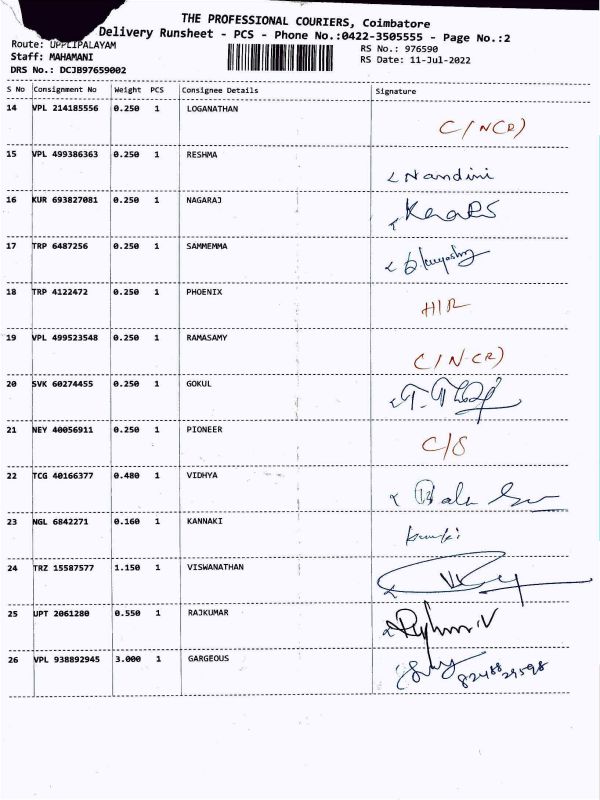 THE PROFESSIONAL COURIERS, Coimbatore
Delivery Runsheet - PCS - Phone No.:0422-3505555 - Page No.:2
Route: UPPLIPALAYAM
Staff: MAHAMANI
DRS No.: DCJB97659002
RS No.: 976590
RS Date: 11-Jul-2022
S No Consignment No Weight PCS Consignee Details Signature
14 VPL 214185556 0.250 1 LOGANATHAN C/N(CR)
15 VPL 499386363 0.250 1 RESHMA Nandini
16 KUR 693827081 0.250 1 NAGARAJ
17 TRP 6487256 0.250 1 SAMMEMMA
18 TRP 4122472 0.250 1 PHOENIX H/R
19 VPL 499523548 0.250 1 RAMASAMY C/N-CR)
20 SVK 60274455 0.250 1 GOKUL
21 NEY 40056911 0.250 1 PIONEER C/S
22 TCG 40166377 0.480 1 VIDHYA Bala
23 NGL 6842271 0.160 1 KANNAKI
24 TRZ 15587577 1.150 1 VISWANATHAN
25 UPT 2061280 0.550 1 RAJKUMAR
26 VPL 938892945 3.000 1 GARGEOUS